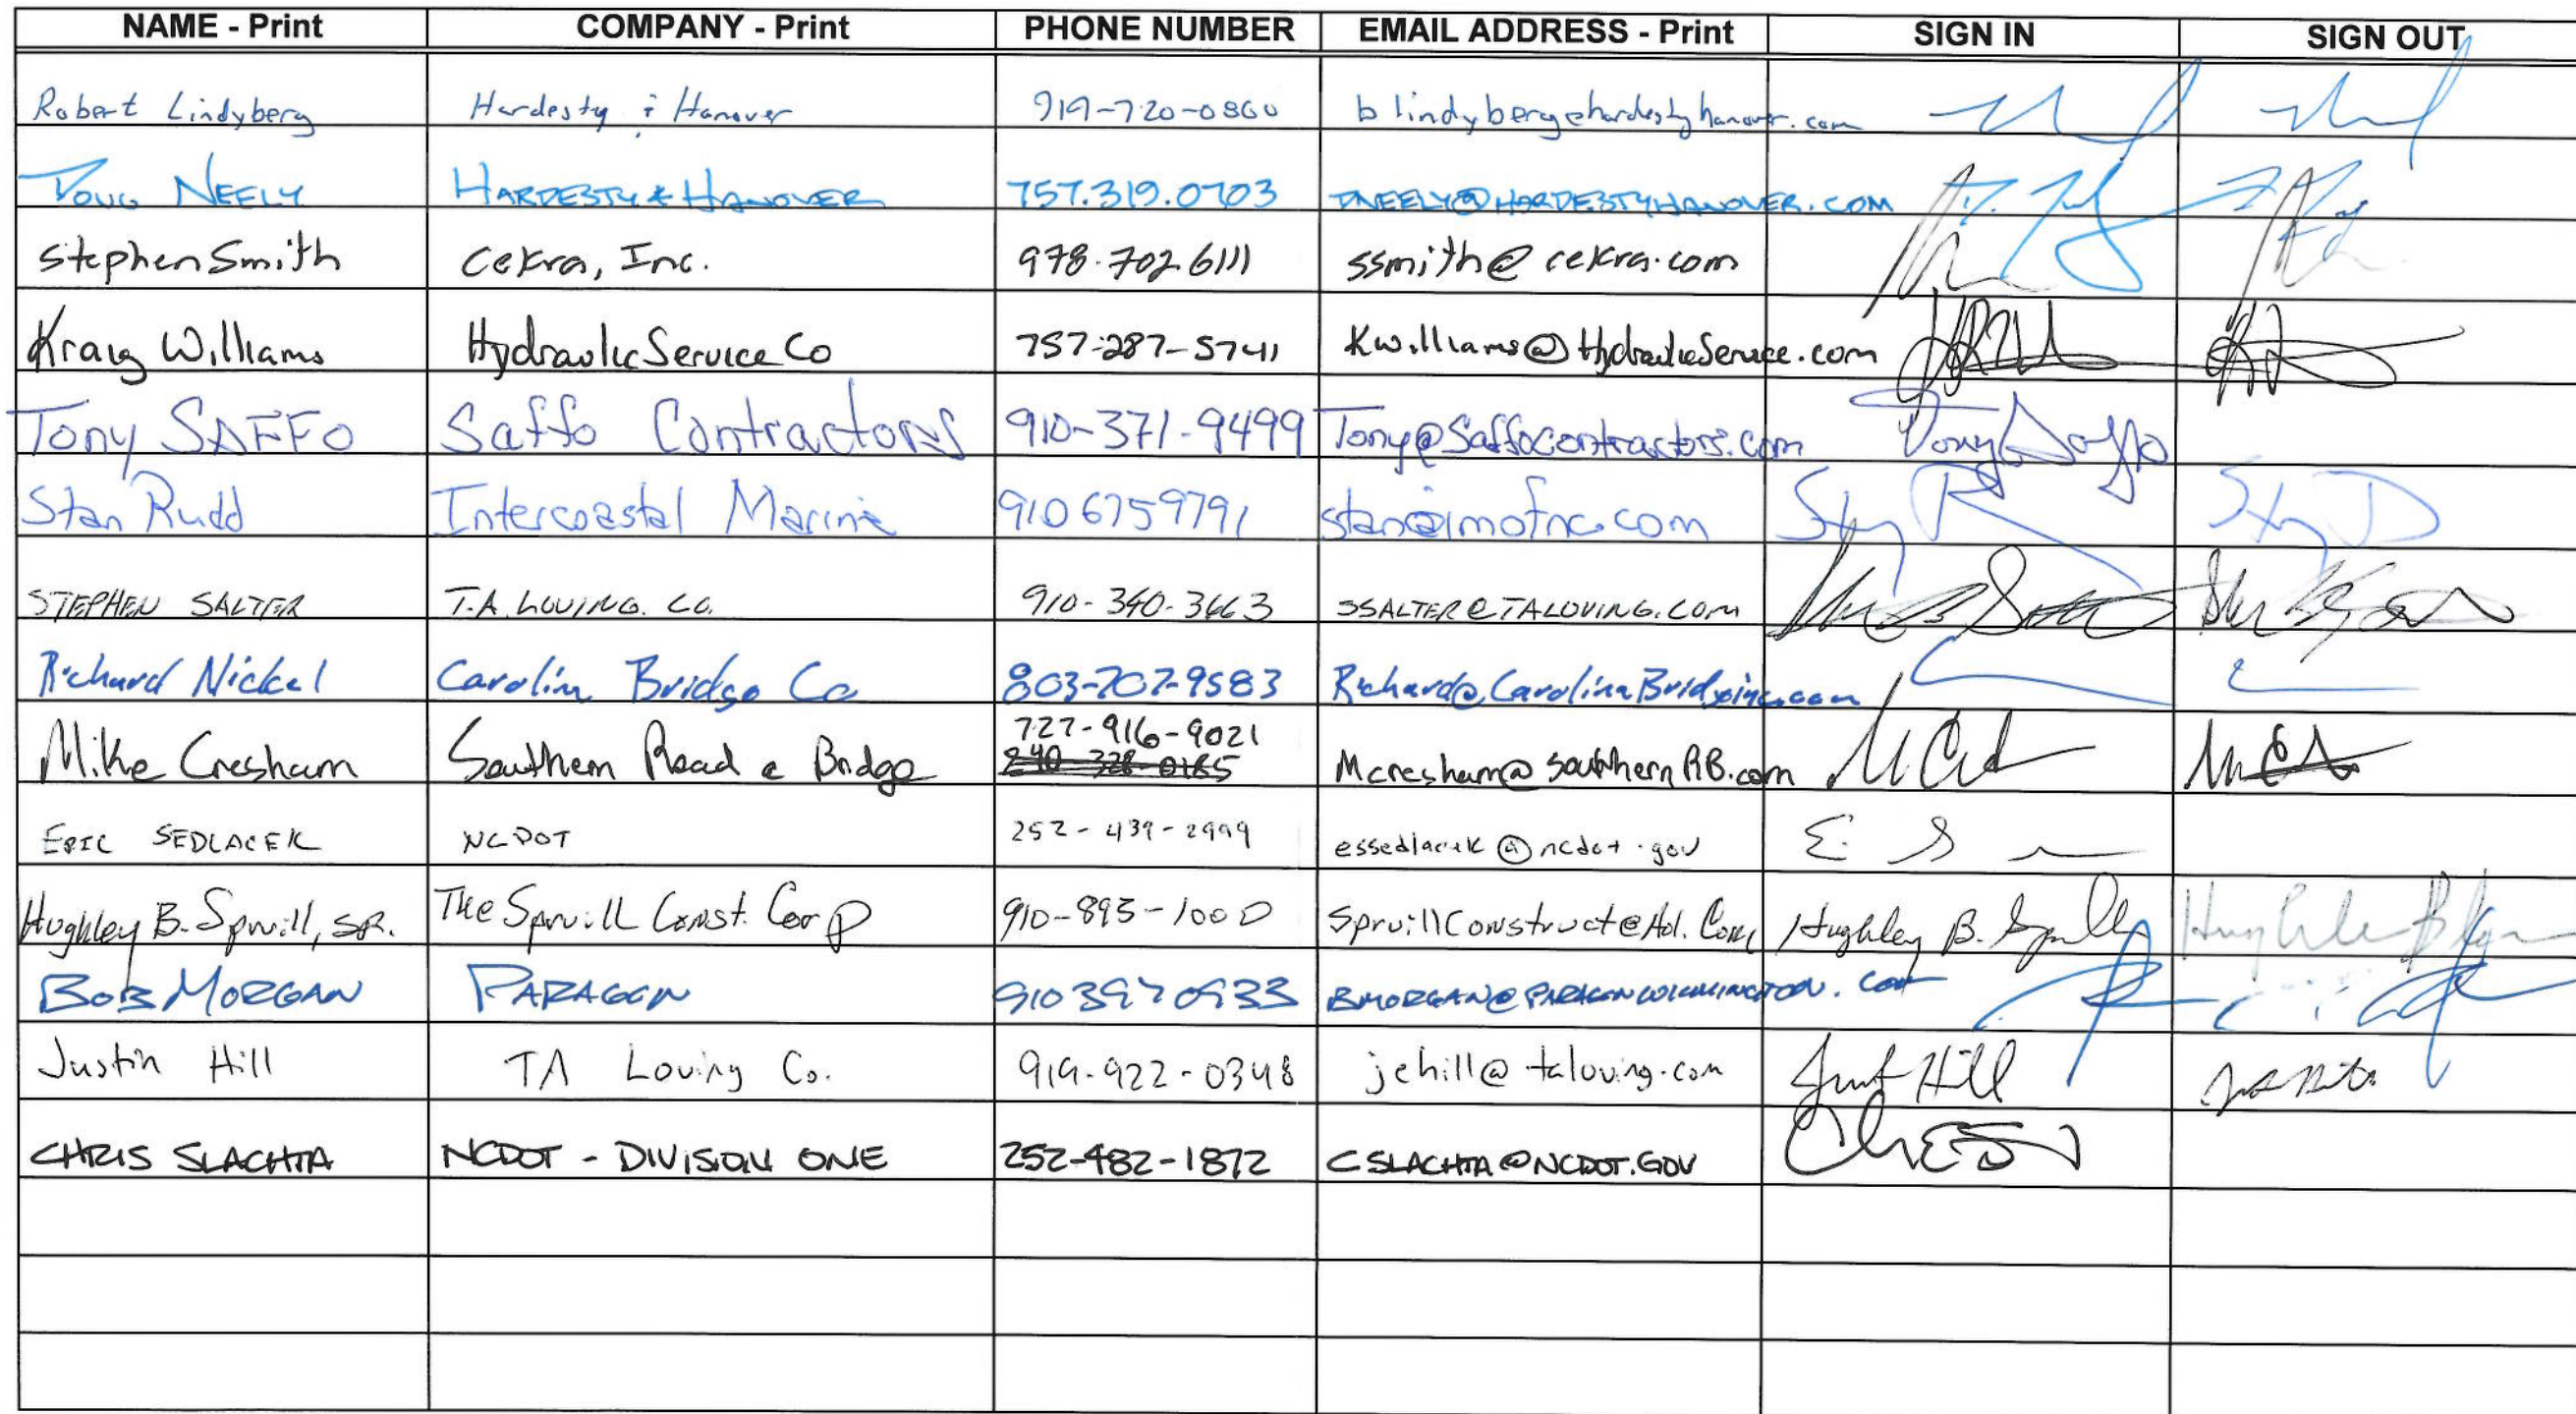 NAME - Print COMPANY - Print PHONE NUMBER EMAIL ADDRESS - Print SIGN IN SIGN OUT
Robert Lindyberg Hardesty & Hanover 919-720-0860 blindyberg@hardestyhanover.com
DOUG NEELY HARDESTY & HANOVER 757.319.0703 DNEELY@HARDESTYHANOVER.COM
Stephen Smith Cekra, Inc. 978.702.6111 ssmith@cekra.com
Kraig Williams Hydraulic Service Co 757-287-5741 Kwilliams@HydraulicService.com
Tony SAFFO Saffo Contractors 910-371-9499 Tony@Saffocontractors.com Tony Saffo
Stan Rudd Intercoastal Marine 910 6759791 stan@imofnc.com
STEPHEN SALTER T.A. LOVING. CO. 910-340-3663 SSALTER@TALOVING.COM
Richard Nickel Carolina Bridge Co 803-707-9583 Richard@CarolinaBridgeinc.com
727-916-9021
Mike Cresham Southern Road & Bridge 240-328-0185 Mcresham@SouthernRB.com
ERIC SEDLACEK NCDOT 252-439-2999 essedlacek@ncdot.gov
Hughley B. Spruill, SR. The Spruill Const. Corp 910-895-1000 SpruillConstruct@Aol.Com Hughley B. Spruill
BOB MORGAN PARAGON 910 397 0933 BMORGAN@PARAGONWILMINGTON.COM
Justin Hill TA Loving Co. 919-922-0348 jehill@taloving.com Justin Hill
CHRIS SLACHTA NCDOT - DIVISION ONE 252-482-1872 CSLACHTA@NCDOT.GOV